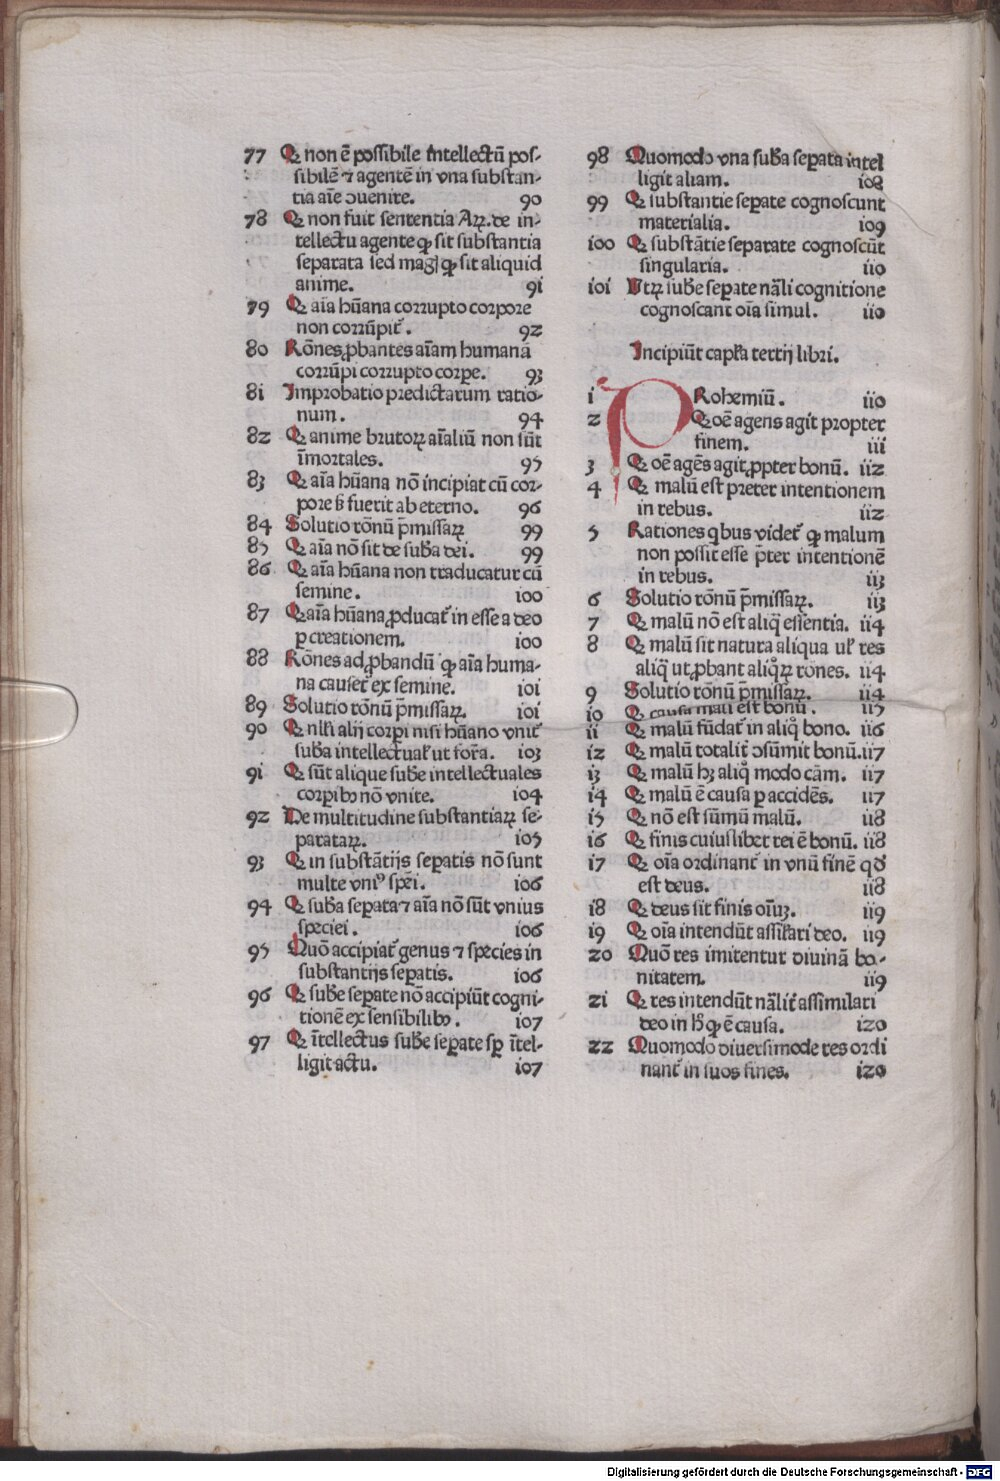 77 Ꝙ non ē possibile intellectū pos-
sibilē ⁊ agentē in vna substan-
tia aīe ꝯuenire. 90
78 Ꝙ non fuit sententia Arꝝ. de in-
tellectu agente ꝙ sit substantia
separata sed magꝭ ꝙ sit aliquid
anime. 91
79 Ꝙ aīa hūana corrupto corpore
non corrūpit᷑. 92
80 Rōnes ꝓbantes aīam humanā
corrūpi corrupto corꝑe. 93
81 Improbatio predictarum ratio-
num. 94
82 Ꝙ anime brutoꝝ aīaliū non sūt
īmortales. 95
83 Ꝙ aīa hūana nō incipiat cū cor-
pore ſꝫ fuerit ab eterno. 96
84 Solutio rōnū p̄missaꝝ 99
85 Ꝙ aīa nō sit de suba dei. 99
86 Ꝙ aīa hūana non traducatur cū
semine. 100
87 Ꝙ aīa hūana ꝓducat᷑ in esse a deo
ꝑ creationem. 100
88 Rōnes ad ꝓbandū ꝙ aīa huma-
na causet᷑ ex semine. 101
89 Solutio rōnū p̄missaꝝ. 101
90 Ꝙ nłi alij corpi nisi hūano vnit᷑
suba intellectual᷑ ut for̄a. 103
91 Ꝙ sūt alique sube intellectuales
corpibꝰ nō vnite. 104
92 De multitudine substantiaꝝ se-
parataꝝ. 105
93 Ꝙ in substātijs seꝑatis nō sunt
multe vniꝰ spēi. 106
94 Ꝙ suba seꝑata ⁊ aīa nō sūt vnius
speciei. 106
95 Quō accipiat᷑ genus ⁊ species in
substantijs seꝑatis. 106
96 Ꝙ sube seꝑate nō accipiūt cogni-
tionē ex sensibilibꝰ. 107
97 Ꝙ ītellectus sube seꝑate sꝑ ītel-
ligit actu. 107
98 Quomodo vna suba seꝑata intel
ligit aliam. 108
99 Ꝙ substantie seꝑate cognoscunt
materialia. 109
100 Ꝙ substātie separate cognoscūt
singularia. 110
101 Vtꝝ sube seꝑate nāli cognitione
cognoscant oīa simul. 110
Incipiūt capła tertij libri.
1 PRohemiū. 110
2 Ꝙ oē agens agit propter
finem. 111
3 Ꝙ oē agēs agit ꝓpter bonū. 112
4 Ꝙ malū est preter intentionem
in rebus. 112
5 Rationes qͥbus videt᷑ ꝙ malum
non possit esse p̄ter intentionē
in rebus. 113
6 Solutio rōnū p̄missaꝝ. 113
7 Ꝙ malū nō est aliqͣ essentia. 114
8 Ꝙ malū sit natura aliqua ul᷑ res
aliqͣ ut ꝓbant aliqͣꝝ rōnes. 114
9 Solutio rōnū p̄missaꝝ. 114
10 Ꝙ causa mali est bonū. 115
11 Ꝙ malū fūdat᷑ in aliqͦ bono. 116
12 Ꝙ malū totalit᷑ ꝯsūmit bonū. 117
13 Ꝙ malū hꝫ aliqͦ modo cām. 117
14 Ꝙ malū ē causa ꝑ accidēs. 117
15 Ꝙ nō est sūmū malū. 118
16 Ꝙ finis cuiuslibet rei ē bonū. 118
17 Ꝙ oīa ordinant᷑ in vnū finē qd̕
est deus. 118
18 Ꝙ deus sit finis oīuꝫ. 119
19 Ꝙ oīa intendūt assiłari deo. 119
20 Quō res imitentur diuinā bo-
nitatem. 119
21 Ꝙ res intendūt nālit᷑ assimilari
deo in hͦ ꝙ ē causa. 120
22 Quomodo diuersimode res ordi
nant᷑ in suos fines. 120
Digitalisierung gefördert durch die Deutsche Forschungsgemeinschaft - DFG